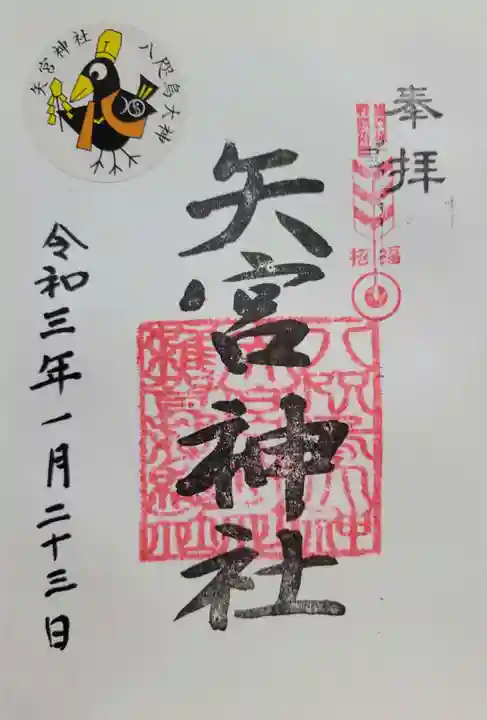 奉拝
招福
矢宮神社
令和三年一月二十三日
矢宮神社
八咫烏大神